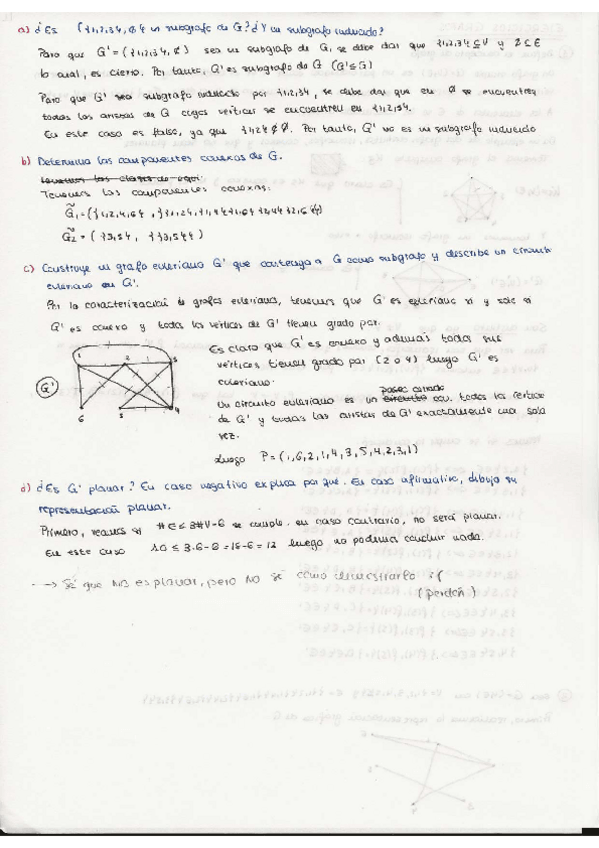 a) ¿Es ({1,2,3}, ∅) un subgrafo de G? ¿Y un subgrafo inducido?
Para que G' = ({1,2,3}, ∅) sea un subgrafo de G, se debe dar que {1,2,3} ⊆ V y ∅ ⊆ E
lo cual, es cierto. Por tanto, G' es subgrafo de G (G' ⊆ G)
Para que G' sea subgrafo inducido por {1,2,3}, se debe dar que en ∅ se encuentren
todas las aristas de G cuyos vértices se encuentren en {1,2,3}.
En este caso es falso, ya que {1,2} ∉ ∅. Por tanto, G' no es un subgrafo inducido
b) Determina las componentes conexas de G.
Tenemos las componentes conexas:
G̃1 = ({1,2,4,6},
G̃2 = ({3,5},
c) Construye un grafo euleriano G' que contenga a G como subgrafo y describe un circuito
euleriano en G'.
Por la caracterización de grafos eulerianos, tenemos que G' es euleriano si y solo si
G' es conexo y todos los vértices de G' tienen grado par.
Es claro que G' es conexo y además todos sus
vértices tienen grado par (2 o 4) luego G' es
euleriano.
G'
1 2 5
6 3 4
paseo cerrado
Un circuito euleriano es un circuito con todos los vértices
de G' y todas las aristas de G' exactamente una sola
vez.
Luego P = (1,6,2,1,4,3,5,4,2,3,1)
d) ¿Es G' planar? En caso negativo explica por qué. En caso afirmativo, dibuja su
representación planar.
Primero, veamos si #E ≤ 3#V-6 se cumple. en caso contrario, no será planar.
En este caso 10 ≤ 3·6-6 = 18-6 = 12 luego no podemos concluir nada.
--→ Sé que NO es planar, pero NO sé como demostrarlo :(
(perdón)